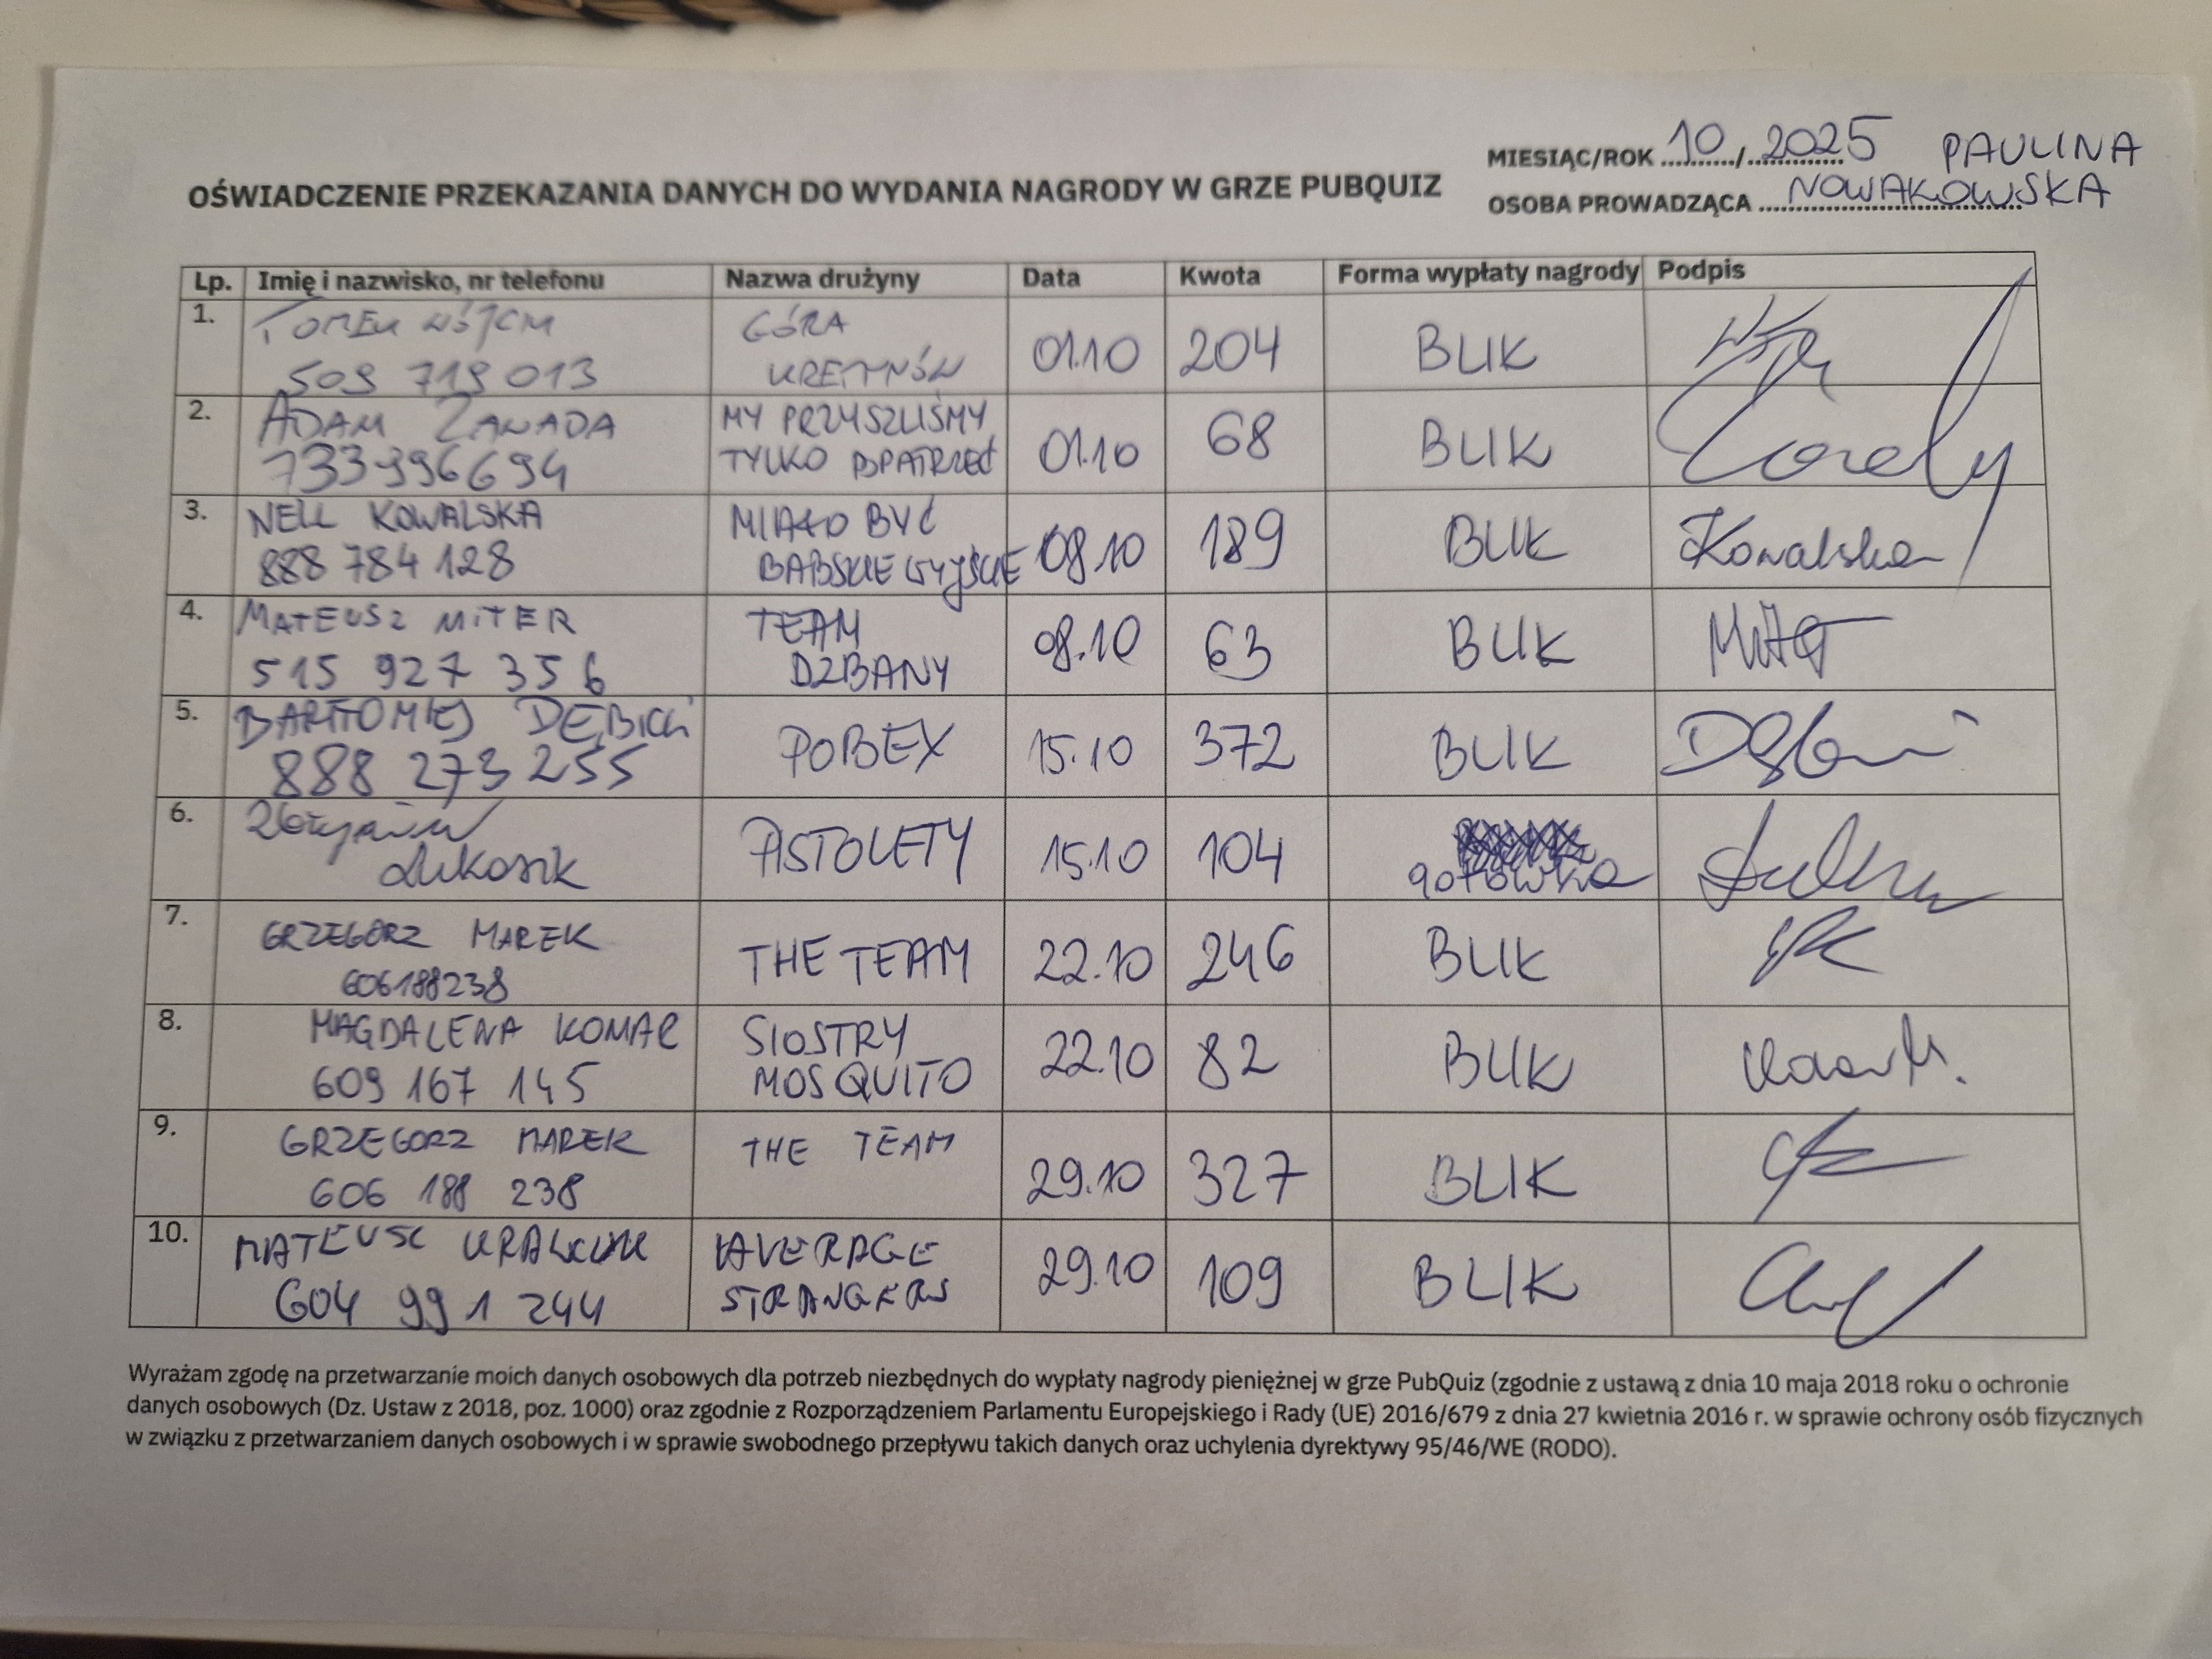 MIESIĄC/ROK 10 / 2025 PAULINA
OŚWIADCZENIE PRZEKAZANIA DANYCH DO WYDANIA NAGRODY W GRZE PUBQUIZ
OSOBA PROWADZĄCA NOWAKOWSKA
Lp. Imię i nazwisko, nr telefonu Nazwa drużyny Data Kwota Forma wypłaty nagrody Podpis
1. TOMEK WÓJCIK GÓRA
509 719 013 KRETYNÓW 01.10 204 BLIK
2. ADAM ZAWADA MY PRZYSZLIŚMY
733996694 TYLKO POPATRZEĆ 01.10 68 BLIK
3. NELL KOWALSKA MIAŁO BYĆ
888 784 128 BABSKIE WYJŚCIE 08.10 189 BLIK Kowalska
4. MATEUSZ MITER TEAM
515 927 356 DZBANY 08.10 63 BLIK
5. BARTŁOMIEJ DĘBICKI
888 273 255 POBEX 15.10 372 BLIK
6. PISTOLETY 15.10 104 gotówka
7. GRZEGORZ MAREK
606188238 THE TEAM 22.10 246 BLIK
8. MAGDALENA KOMAR SIOSTRY
609 167 145 MOSQUITO 22.10 82 BLIK
9. GRZEGORZ MAREK THE TEAM
606 188 238 29.10 327 BLIK
10. MATEUSZ AVERAGE
604 991 244 STRANGERS 29.10 109 BLIK
Wyrażam zgodę na przetwarzanie moich danych osobowych dla potrzeb niezbędnych do wypłaty nagrody pieniężnej w grze PubQuiz (zgodnie z ustawą z dnia 10 maja 2018 roku o ochronie
danych osobowych (Dz. Ustaw z 2018, poz. 1000) oraz zgodnie z Rozporządzeniem Parlamentu Europejskiego i Rady (UE) 2016/679 z dnia 27 kwietnia 2016 r. w sprawie ochrony osób fizycznych
w związku z przetwarzaniem danych osobowych i w sprawie swobodnego przepływu takich danych oraz uchylenia dyrektywy 95/46/WE (RODO).